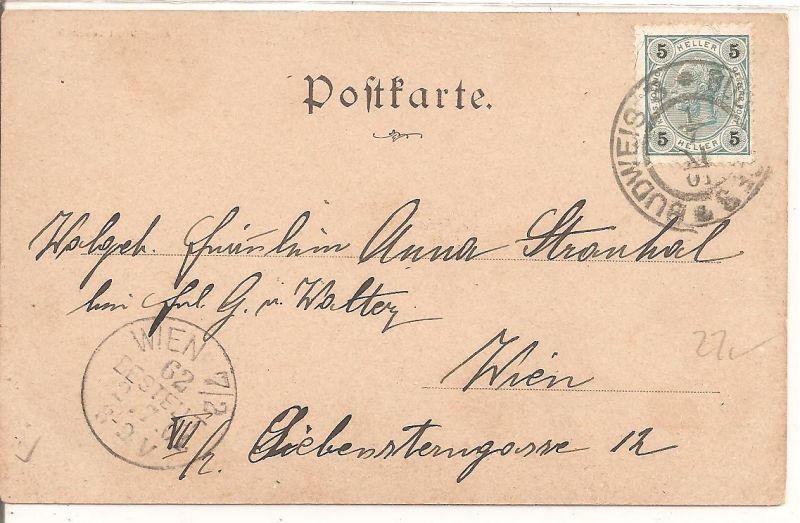 Postkarte.
5 HELLER 5
5 HELLER 5
BUDWEIS
01
Wolgeb. Fräulein Anna Stranhal
bei Frl. G. v. Walter
Wien
VII/2. Siebensterngasse 12
WIEN 7/2
62
BESTELLT
8-9 V